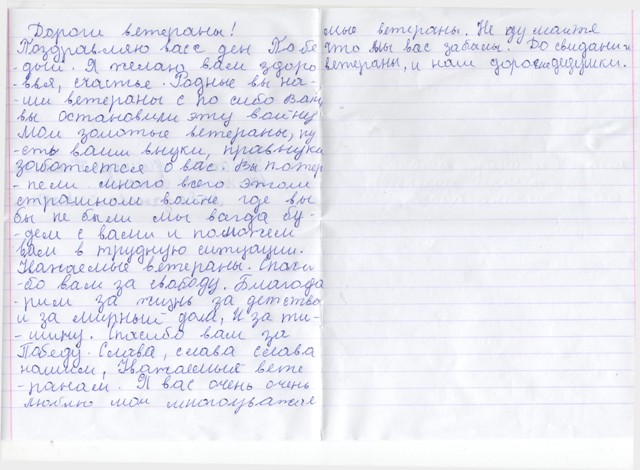 Дороги ветераны!
Поздравляю васс ден Побе
-дый. Я желаю вам здоро
-вья, счастье. Родные вы на-
ши ветераны с по сибо Вам,
вы остановили эту войну
Мои золотые ветераны, пу
-сть ваши внуки, правнуки
заботятся о вас. Вы потер
-пели много всего этом
страшном войне где вы
бы не были мы всгда бу-
-дем с вами и поможем
вам в трудную ситуации.
Уважаемые ветераны. Споси
-бо вам за свободу. Благода
-рим за жизнь за детство
и за мирный дом, и за ти-
-шину. Спосибо вам за
Победу. Слава, слава слава
нашим, Уважаемый вете
-ранам. Я вас очень очень
люблю мои многоуважае
мые ветераны. Не думайте
что мы вас забыли. До свидания
ветераны, и наши дорогие дедушки.